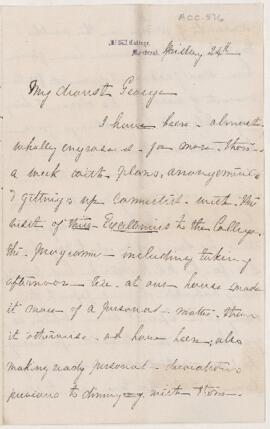 ACC-576
McGill College,
Montreal.
Friday 24th
My dearest George
I have been almost
wholly engrossed for more than
a week with plans, arrangements
& gettings up connected with the
visit of their Excellencies to the College.
The programme including taking
afternoon tea at our house made
it more of a personal matter than
it otherwise would have been, also
making ready personal decorations
previous to dining with them